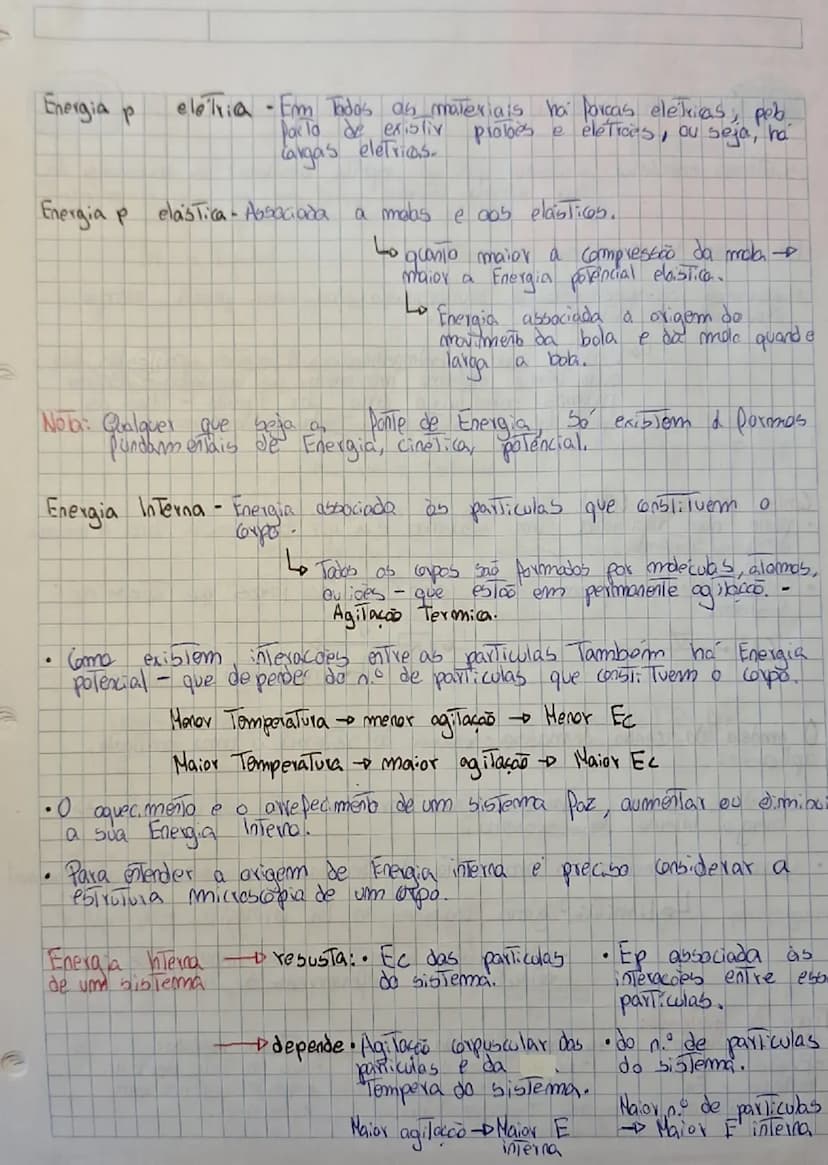 Energia p elétria - Em Todos os materiais há forças eletricas, pelo
facto de existir protões e eletrões, ou seja, há
cargas eletricas.
Energia p elástica - Associada a molas e aos elásticos.
↳ quanto maior a compressão da mola →
maior a Energia potencial elástica.
↳ Energia associada a origem do
movimento da bola e da mola quando
larga a bola.
Nota: Qualquer que seja a fonte de Energia, só existem 2 formas
fundamentais de Energia, cinética, potencial.
Energia Interna - Energia associada às particulas que constituem o
corpo.
↳ Todos os corpos são formados por moleculas, atomos,
ou iões - que estão em permanente agitação. -
Agitação Termica.
• Como existem interacoes entre as particulas Também há Energia
potencial - que depende do n.º de particulas que constituem o corpo.
Menor Temperatura → menor agitação → Menor Ec
Maior Temperatura → maior agitação → Maior Ec
• O aquecimento e o arrefecimento de um sistema faz, aumentar ou diminui
a sua Energia Interna.
• Para entender a origem de Energia interna é preciso considerar a
estrutura microscopia de um corpo.
Energia Interna → resusta: • Ec das particulas • Ep associada às
de um sistema do sistema. interacoes entre essa
particulas.
→ depende • Agitação corpuscular das • do n.º de particulas
particulas e da do sistema.
Tempera do sistema.
Maior n.º de particulas
Maior agitação → Maior E → Maior E interna
interna